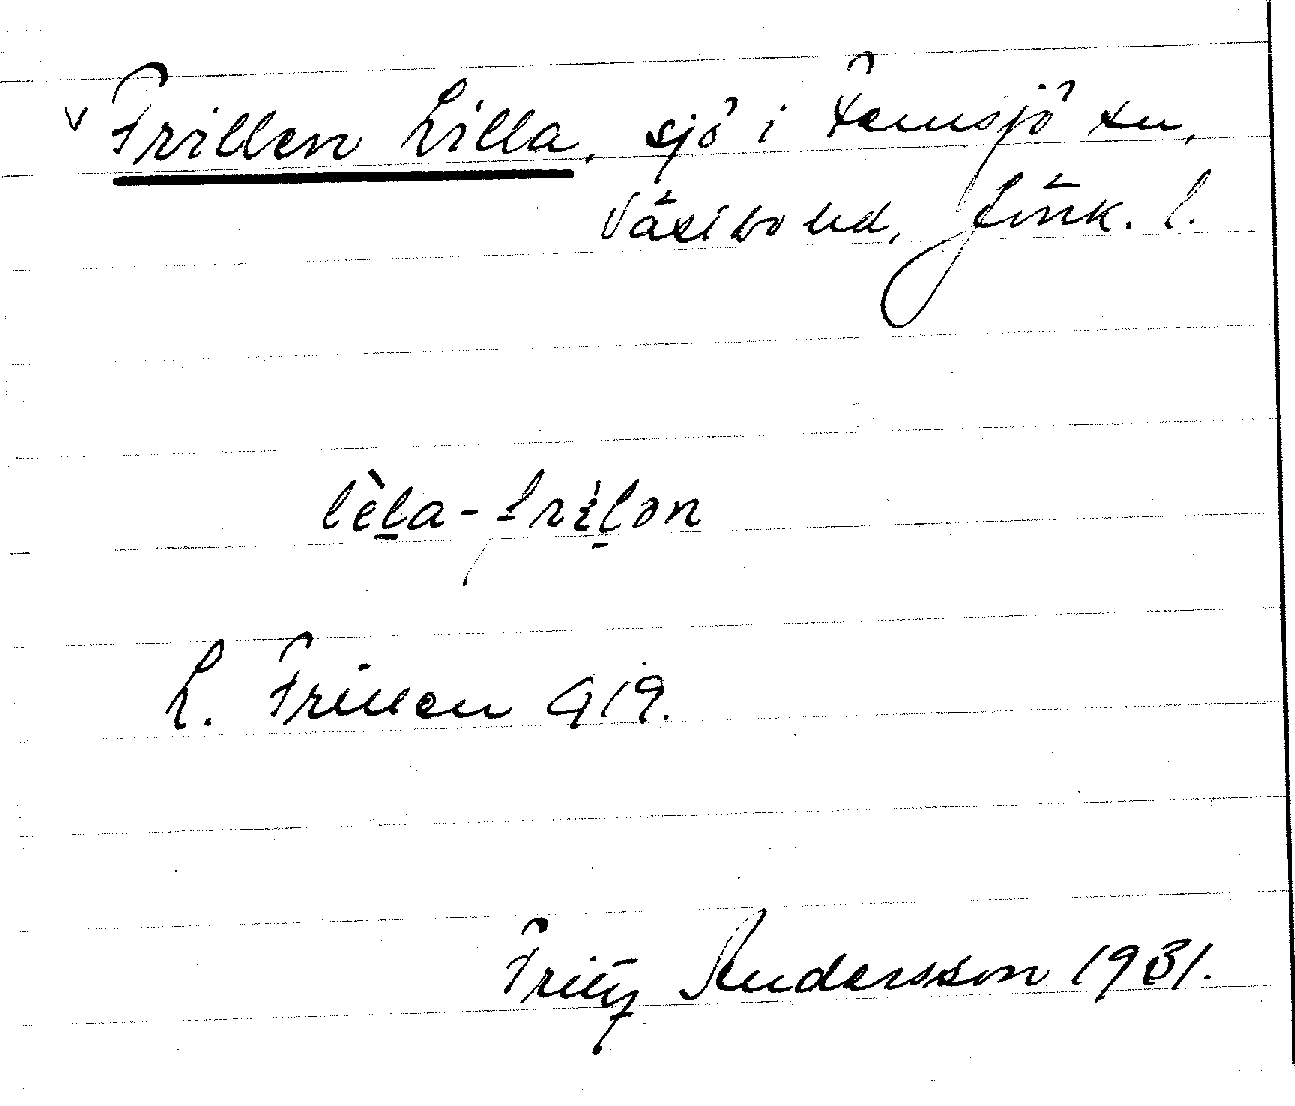 v Frillen Lilla, sjö i Femsjö sn,
Västbo hd, Jönk. l.
lèla-frilon
L. Frillen G19.
Fritz Andersson 1931.